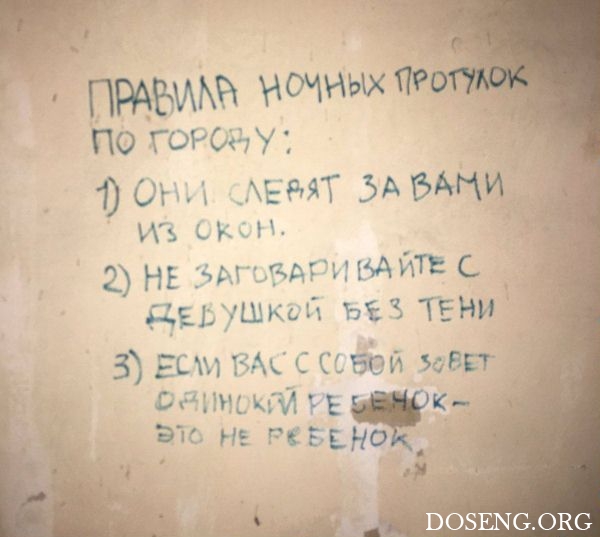 ПРАВИЛА НОЧНЫХ ПРОГУЛОК
ПО ГОРОДУ:
1) ОНИ СЛЕДЯТ ЗА ВАМИ
ИЗ ОКОН.
2) НЕ ЗАГОВАРИВАЙТЕ С
ДЕВУШКОЙ БЕЗ ТЕНИ
3) ЕСЛИ ВАС С СОБОЙ ЗОВЕТ
ОДИНОКИЙ РЕБЕНОК–
ЭТО НЕ РЕБЕНОК
DOSENG.ORG